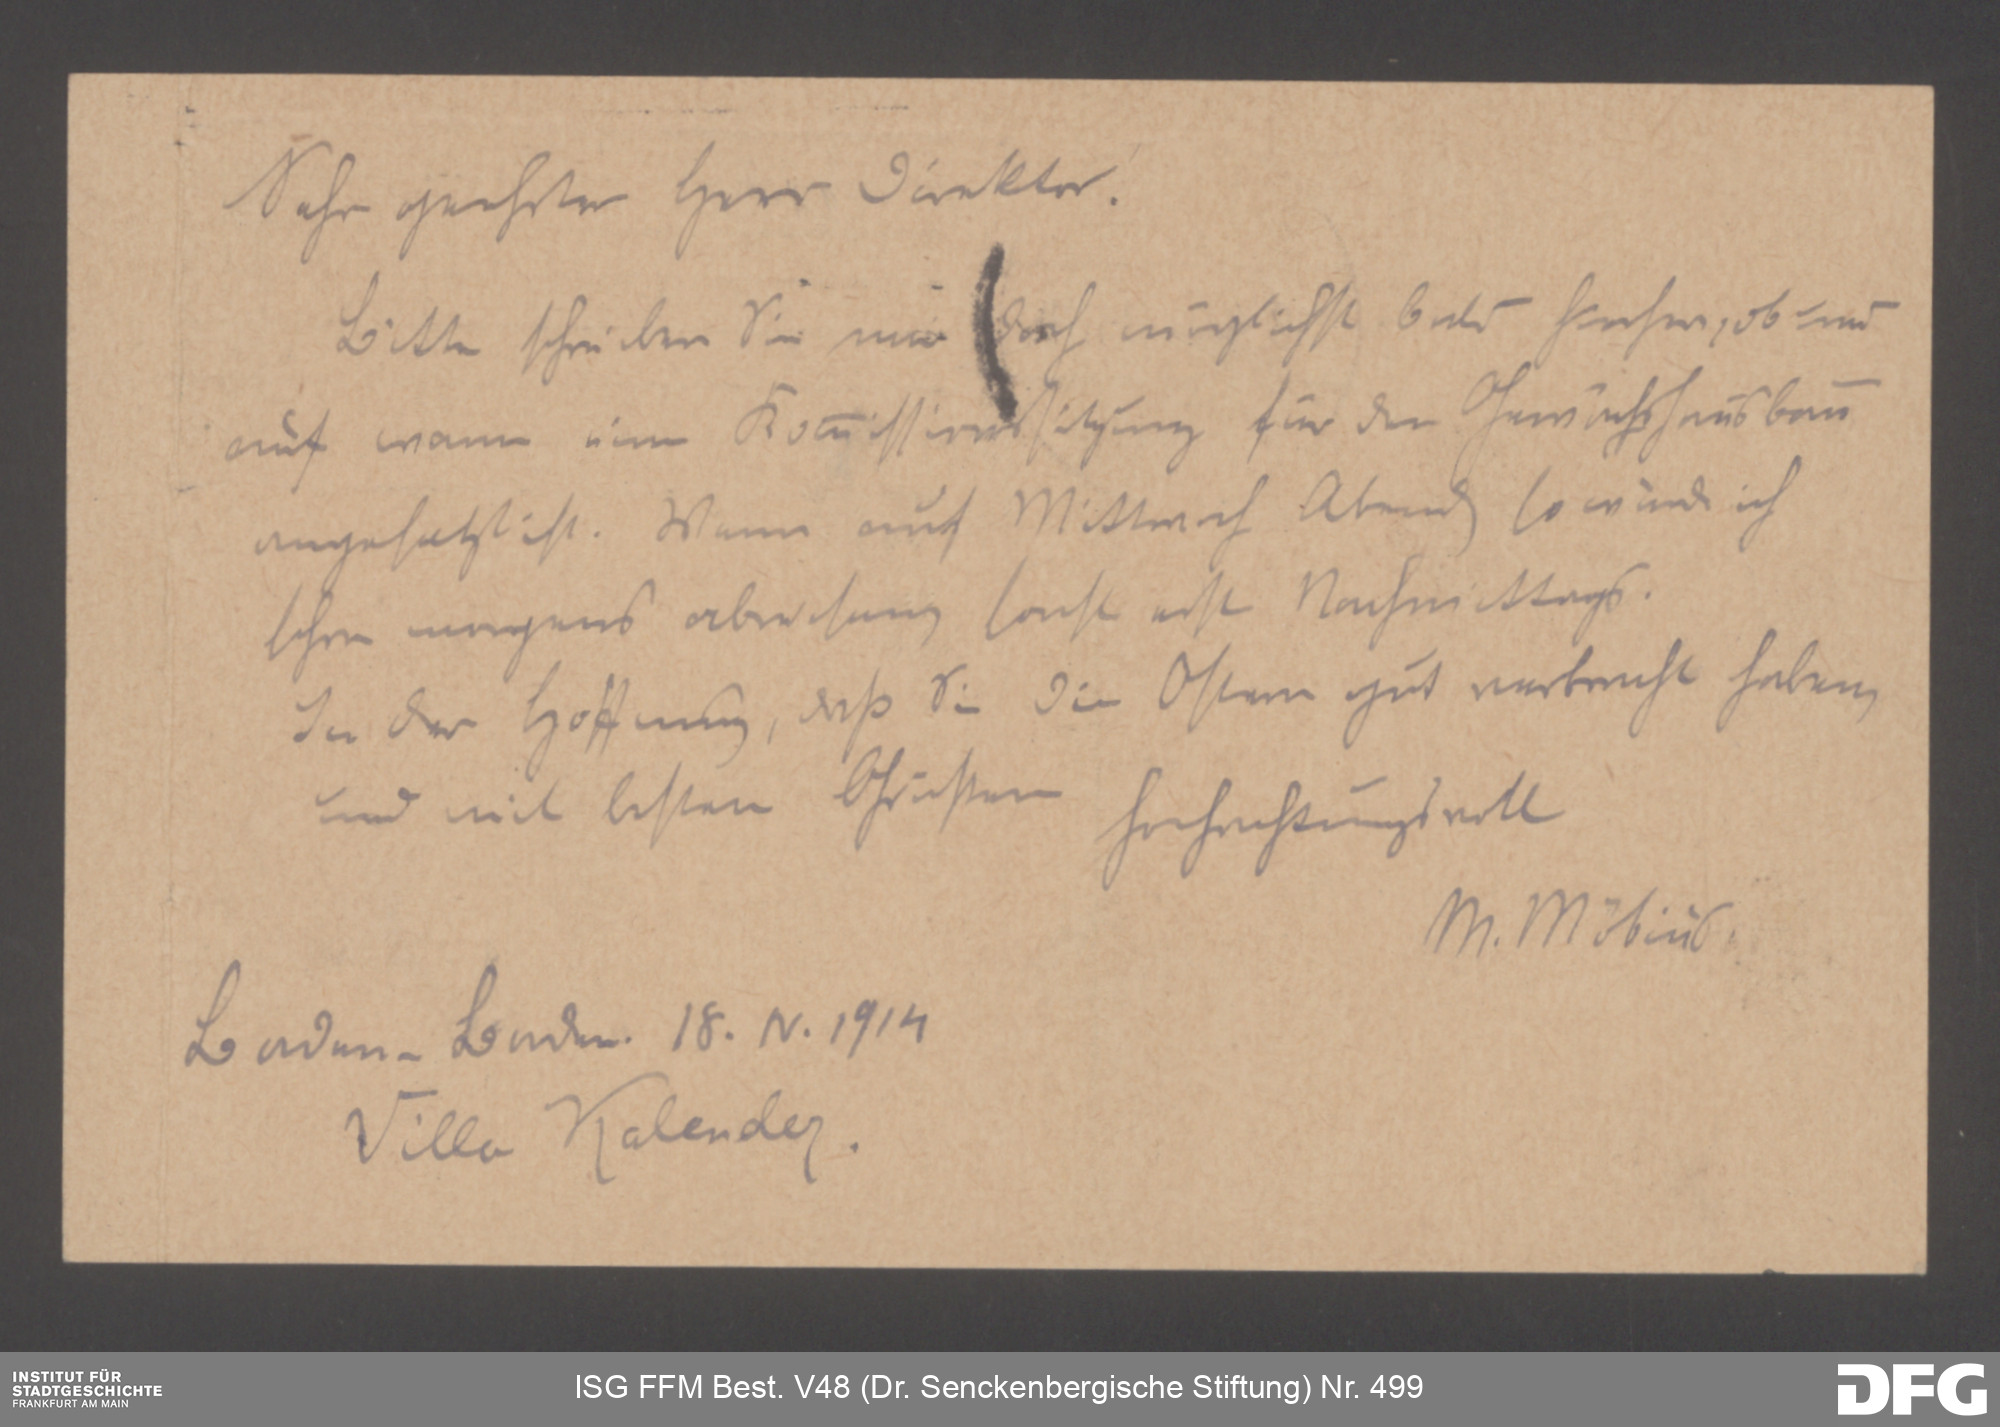 Sehr geehrter Herr Direktor!
Bitte schreiben Sie mir doch möglichst bald hierher, ob und
auf wann eine Kommissionssitzung für den Gewächshausbau
angesetzt ist. Wenn auf Mittwoch Abend, so würde ich
schon morgens abreisen, sonst erst Nachmittags.
In der Hoffnung, daß Sie die Ostern gut verbracht haben,
und mit besten Grüßen hochachtungsvoll
M. Möbius.
Baden-Baden. 18. IV. 1914
Villa Kalender.
INSTITUT FÜR
STADTGESCHICHTE
FRANKFURT AM MAIN
ISG FFM Best. V48 (Dr. Senckenbergische Stiftung) Nr. 499
DFG